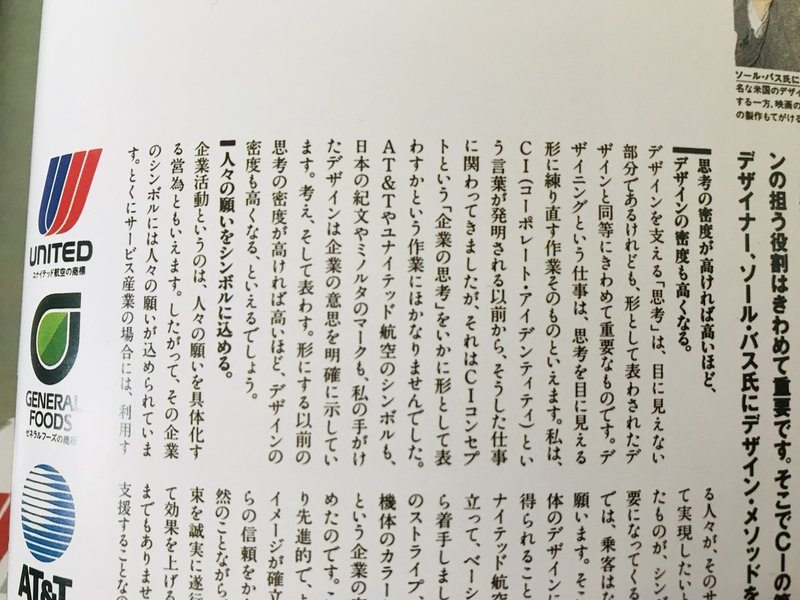 ソール・バス氏に
名な米国のデザイ
する一方、映画の
の製作もてがける
ンの担う役割はきわめて重要です。そこでCIの
デザイナー、ソール・バス氏にデザイン・メソッドを
思考の密度が高ければ高いほど、
デザインの密度も高くなる。
デザインを支える「思考」は、目に見えない
部分であるけれども、形として表わされたデ
ザインと同等にきわめて重要なものです。デ
ザイニングという仕事は、思考を目に見える
形に練り直す作業そのものといえます。私は、
CI(コーポレート・アイデンティティ)とい
う言葉が発明される以前から、そうした仕事
に関わってきましたが、それはCIコンセプ
トという「企業の思考」をいかに形として表
わすかという作業にほかなりませんでした。
AT&Tやユナイテッド航空のシンボルも、
日本の紀文やミノルタのマークも、私の手がけ
たデザインは企業の意思を明確に示してい
ます。考え、そして表わす。形にする以前の
思考の密度が高ければ高いほど、デザインの
密度も高くなる、といえるでしょう。
人々の願いをシンボルに込める。
企業活動というのは、人々の願いを具体化す
る営為ともいえます。したがって、その企業
のシンボルには人々の願いが込められていま
す。とくにサービス産業の場合には、利用す
る人々が、そのサ
て実現したいと
たものが、シン
要になってくる
では、乗客はな
願います。そこ
体のデザインに
得られること
ナイテッド航空
立って、ベーシ
ら着手しまし
のストライプ、
機体のカラー
という企業の
めたのです。こ
り先進的で、よ
イメージが確立
らの信頼をか
然のことながら、
束を誠実に遂行
て効果を上げる
までもありませ
支援することなの
UNITED
ユナイテッド航空の商標
GENERAL
FOODS
ゼネラルフーズの商標
AT&T